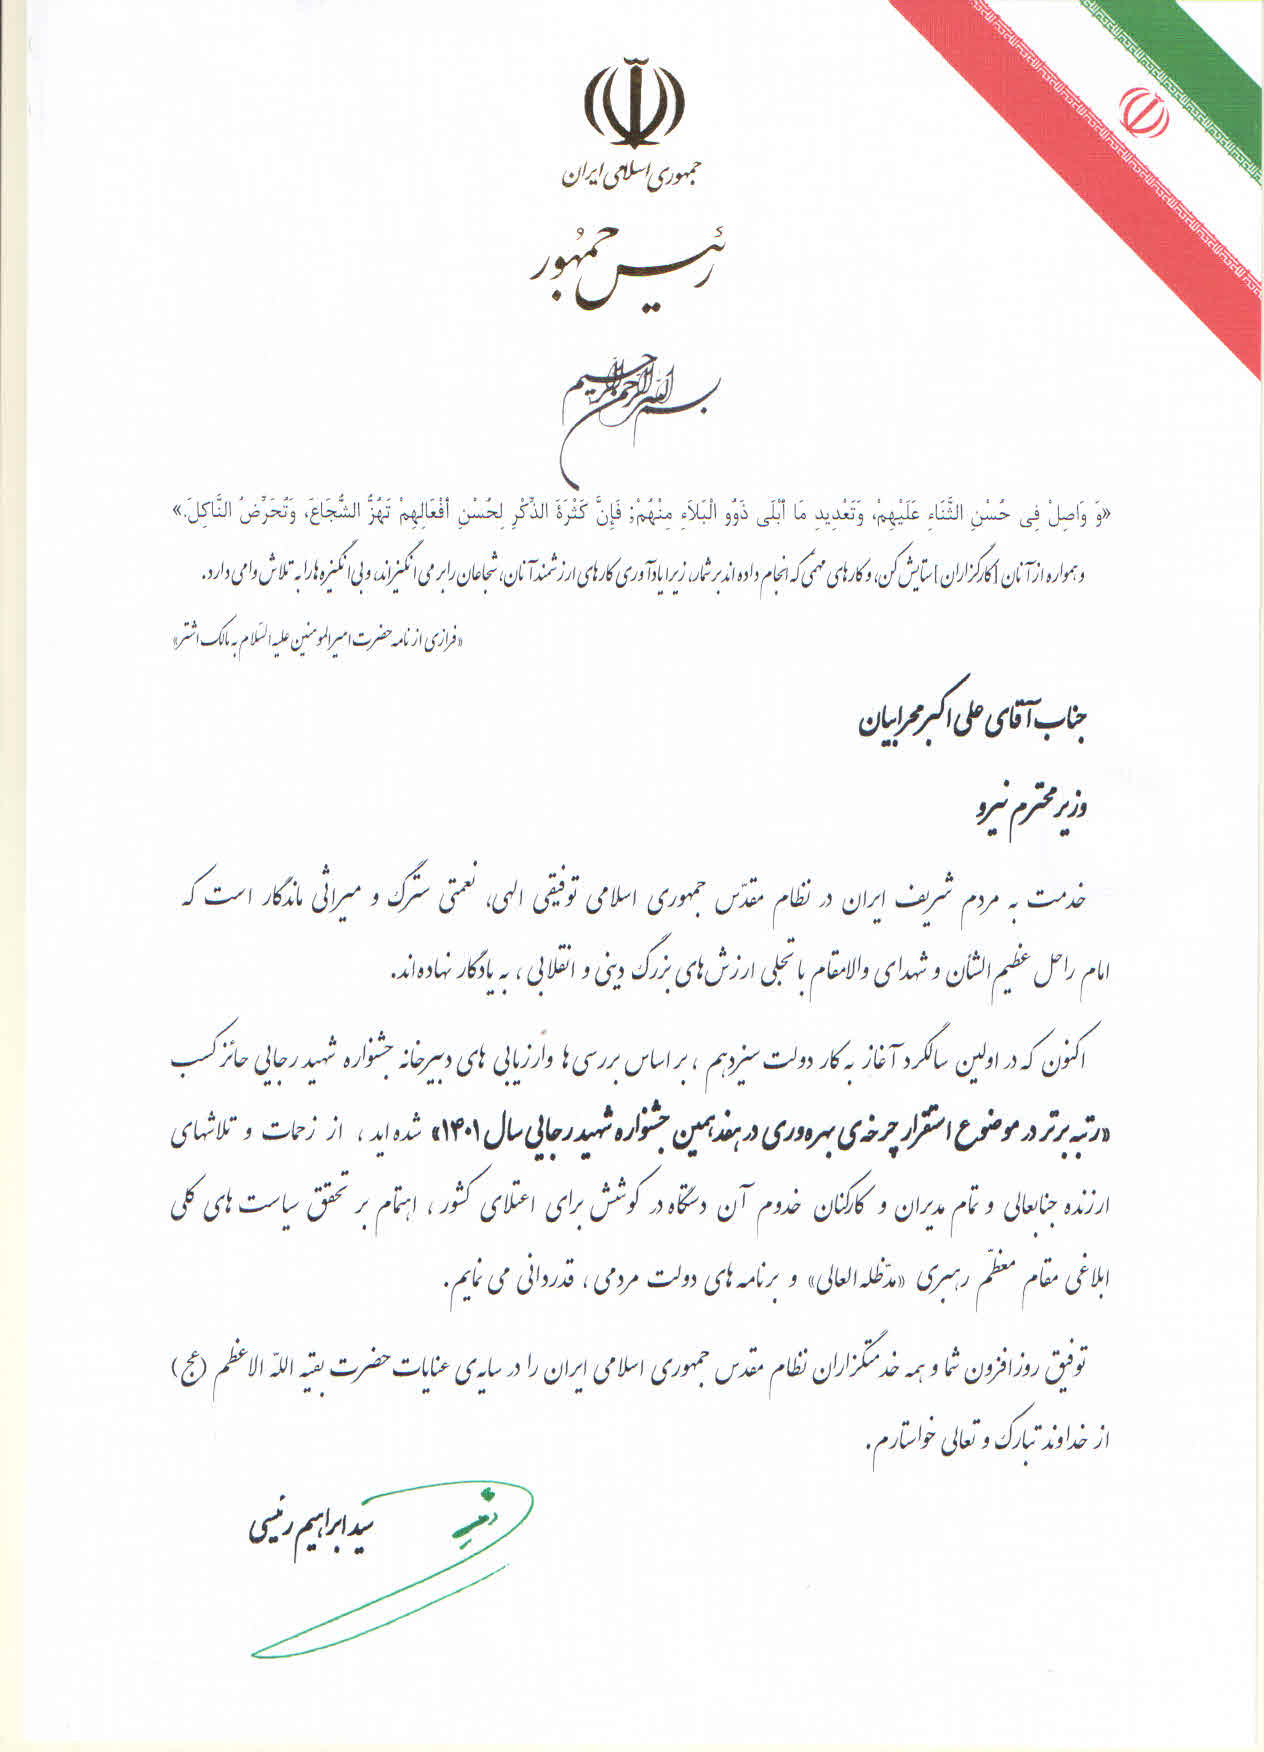 جمهوری اسلامی ایران
رئیس جمهور
بسم الله الرحمن الرحیم
«وَ وَاصِلْ فِی حُسْنِ الثَّنَاءِ عَلَیْهِمْ، وَتَعْدِیدِ مَا أَبْلَی ذَوُو الْبَلَاءِ مِنْهُمْ; فَإِنَّ کَثْرَةَ الذِّکْرِ لِحُسْنِ أَفْعَالِهِمْ تَهُزُّ الشُّجَاعَ، وَتُحَرِّضُ النَّاکِلَ.»
و همواره از آنان [کارگزاران] ستایش کن، و کارهای مهمی که انجام داده اند بر شمار، زیرا یادآوری کارهای ارزشمند آنان، شجاعان را بر می انگیزاند، و بی انگیزه ها را به تلاش وا می دارد.
«فرازی از نامه حضرت امیرالمومنین علیه السّلام به مالک اشتر»
جناب آقای علی اکبر محرابیان
وزیر محترم نیرو
خدمت به مردم شریف ایران در نظام مقدّس جمهوری اسلامی توفیقی الهی، نعمتی سترگ و میراثی ماندگار است که
امام راحل عظیم الشأن و شهدای والامقام با تجلی ارزش‌های بزرگ دینی و انقلابی ، به یادگار نهاده‌اند.
اکنون که در اولین سالگرد آغاز به کار دولت سیزدهم ، بر اساس بررسی ها و ارزیابی های دبیرخانه جشنواره شهید رجایی حائز کسب
«رتبه برتر در موضوع استقرار چرخه‌ی بهره‌وری در هفدهمین جشنواره شهید رجایی سال ۱۴۰۱» شده اید ، از زحمات و تلاشهای
ارزنده جنابعالی و تمام مدیران و کارکنان خدوم آن دستگاه در کوشش برای اعتلای کشور ، اهتمام بر تحقق سیاست های کلی
ابلاغی مقام معظّم رهبری «مدّظله العالی» و برنامه های دولت مردمی ، قدردانی می نمایم.
توفیق روزافزون شما و همه خدمتگزاران نظام مقدس جمهوری اسلامی ایران را در سایه‌ی عنایات حضرت بقیه اللّه الاعظم (عج)
از خداوند تبارک و تعالی خواستارم.
سید ابراهیم رئیسی